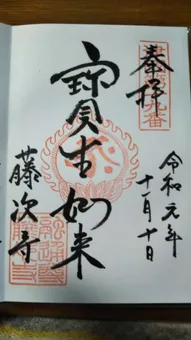 奉拝
令和元年
十一月十日
寶生如来
藤次寺